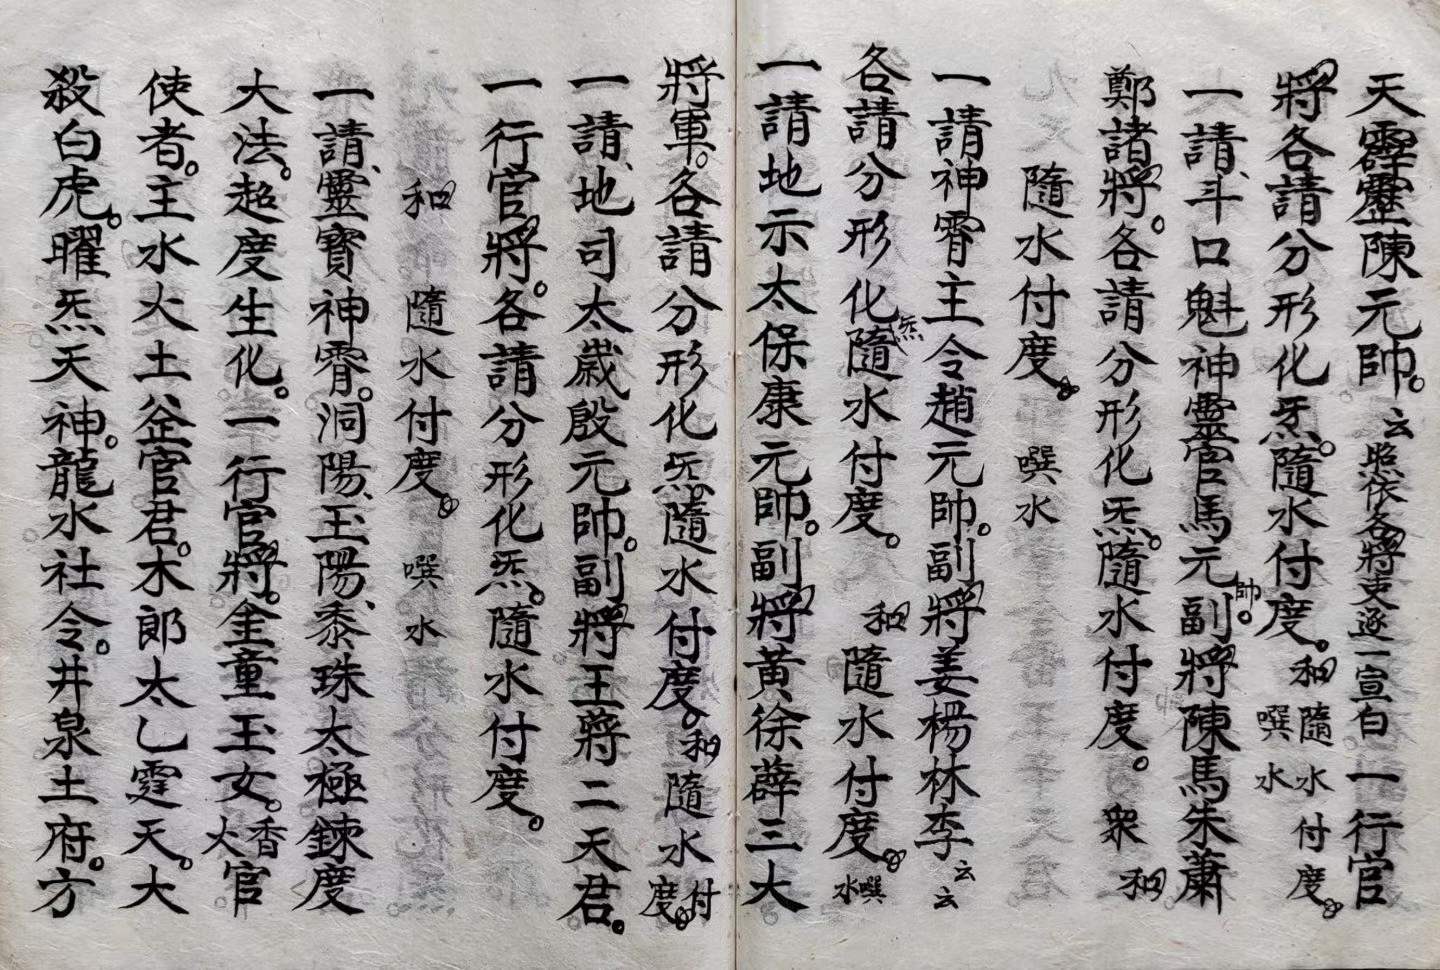 天霹靂陳元帥。云照依各將吏逐一宣白一行官
將各請分形化炁。隨水付度。和隨水付度。噀水
一請、斗口魁神靈官馬元帥。副將陳馬朱蕭
鄭諸將。各請分形化炁。隨水付度。衆和
隨水付度。噀水
一請神霄主令趙元帥。副將姜楊林李云云
各請分形化炁隨水付度。和隨水付度。噀水
一請地示太保康元帥。副將黃徐薛三大
將軍。各請分形化炁隨水付度。和隨水付度。
一請、地司太歲殷元帥。副將王蔣二天君。
一行官將。各請分形化炁。隨水付度。
和隨水付度。噀水
一請、靈寶神霄。洞陽、玉陽、黍珠太極鍊度
大法。超度生化。一行官將。金童玉女。香火官
使者。主水火土公官君。木郎太乙霆天。大
殺白虎。曜炁天神。龍水社令。井泉土府。方